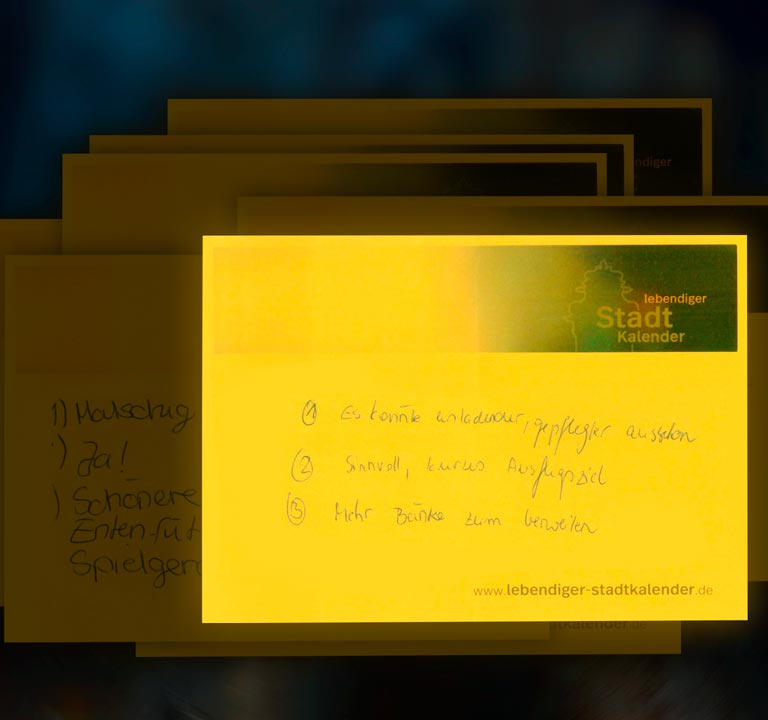 ndiger
lebendiger
Stadt
Kalender
1) Matschig
) Ja!
) Schönere
Enten füt
Spielger
① Es könnte einladender, gepflegter aussehen
② Sinnvoll, kurzes Ausflugsziel
③ Mehr Bänke zum verweilen
www.lebendiger-stadtkalender.de
atkalender.de